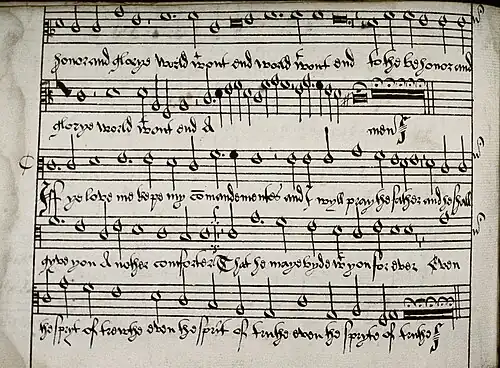 honor and glorye world wtout end world wtout end to the be honor and
glorye world wtout end A men
Iff ye love me kepe my comandementes and I wyll pray the father and he shall
gyve you A nother comforter That he maye byde wt you for ever Even
the sprit of trewthe even the sprit of truthe even the spryte of truthe